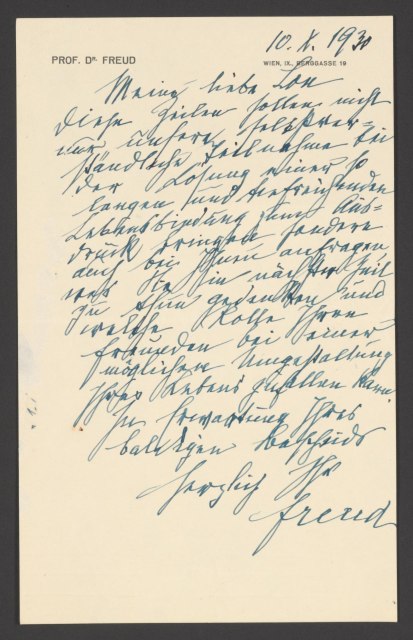 10. X. 1930
PROF. DR. FREUD
WIEN, IX., BERGGASSE 19
Meine liebe Lou
Diese Zeilen sollen nicht
nur unsere selbstver-
ständliche Teilnahme bei
der Lösung einer so
langen und tiefreichenden
Lebensbindung zum Aus-
druck bringen sondern
auch bei Ihnen anfragen
was Sie in nächster Zeit
zu thun gedenken und
welche Rolle Ihren
Freunden bei einer
möglichen Umgestaltung
Ihres Lebens zufallen kann.
In Erwartung Ihres
baldigen Bescheids
herzlich Ihr
Freud